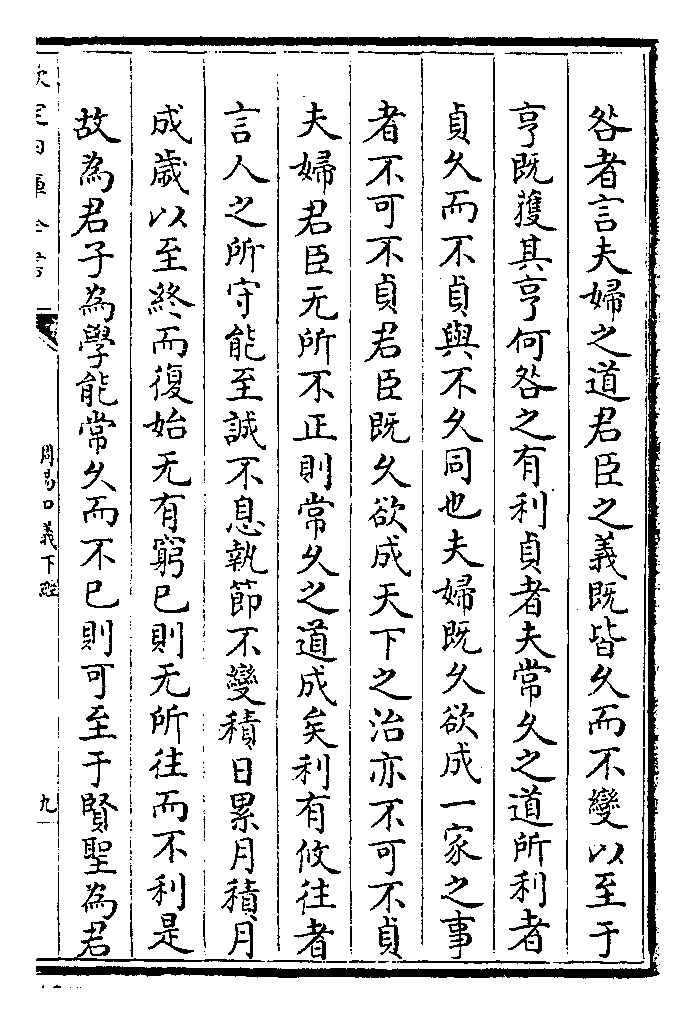 咎者言夫婦之道君臣之義既皆久而不變以至于
亨既獲其亨何咎之有利貞者夫常久之道所利者
貞久而不貞與不久同也夫婦既久欲成一家之事
者不可不貞君臣既久欲成天下之治亦不可不貞
夫婦君臣无所不正則常久之道成矣利有攸往者
言人之所守能至誠不息執節不變積日累月積月
成歲以至終而復始无有窮已則无所往而不利是
故為君子為學能常久而不已則可至于賢聖為君
周易口義下經
九